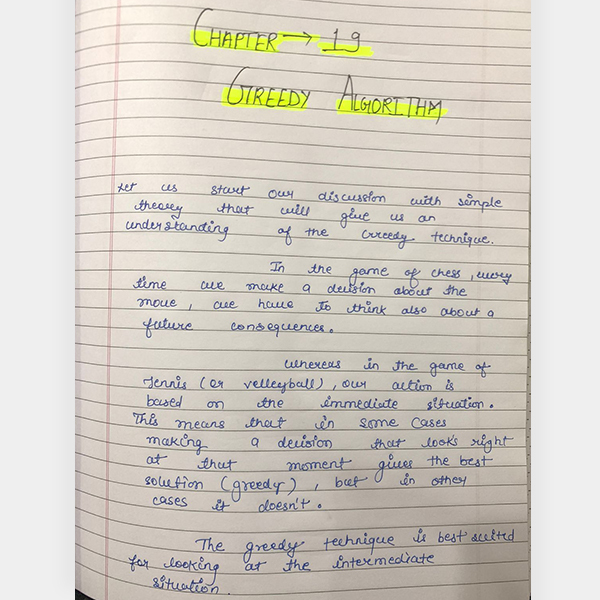 CHAPTER → 19
GREEDY ALGORITHM
Let us start our discussion with simple
theory that will give us an
understanding of the Greedy technique.
In the game of chess, every
time we make a decision about the
move, we have to think also about a
future consequences.
whereas in the game of
Tennis (or velleyball), our action is
based on the immediate situation.
This means that in some cases
making a decision that looks right
at that moment gives the best
solution (greedy), but in other
cases it doesn't.
The greedy technique is best suited
for looking at the intermediate
situation.